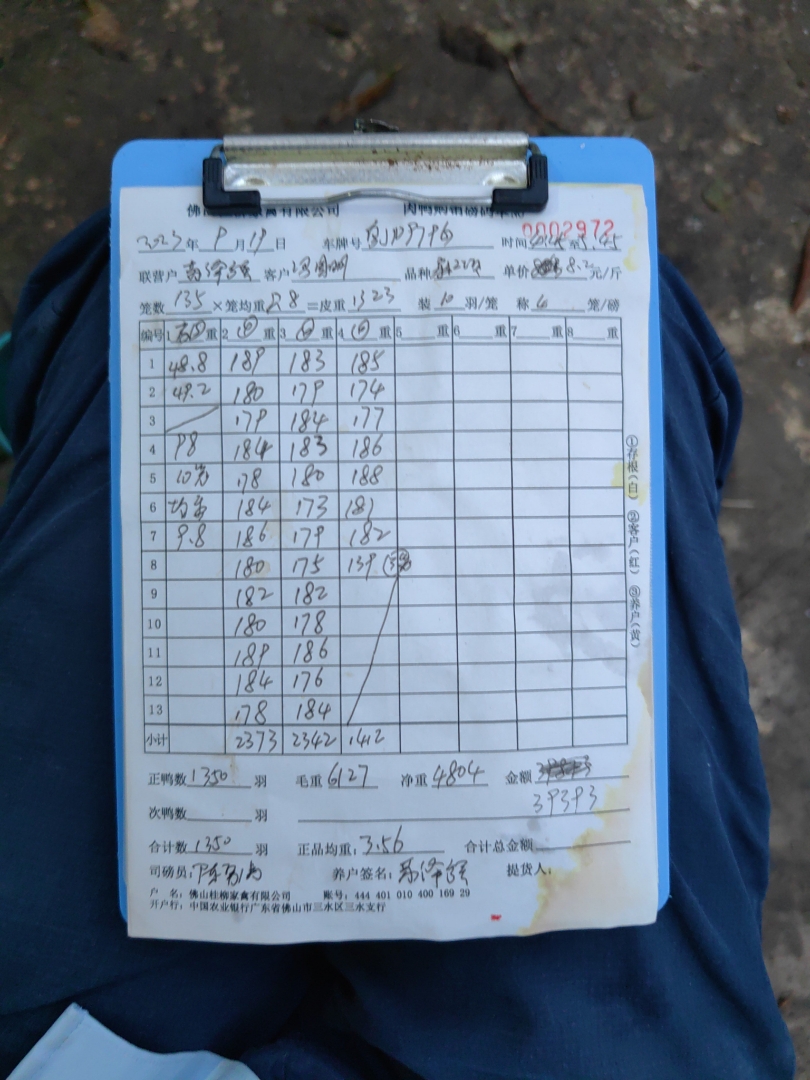 有限公司
0002972
2023年9月19日 车牌号 时间
联营户 客户 品种 单价 8.2元/斤
笼数135×笼均重9.8=皮重1323 装10羽/笼 称 笼/磅
编号 1 重 2 回 重 3 回 重 4 回 重 5 重 6 重 7 重 8 重
1 48.8 189 183 185
2 49.2 180 179 174
3 179 184 177
4 98 184 183 186
5 10 178 180 188
6 均重 184 173 181
7 9.8 186 179 182
8 180 175 139
9 182 182
10 180 178
11 189 186
12 184 176
13 178 184
小计 2373 2342 1412
①存根(白) ②客户(红) ③养户(黄)
正鸭数1350羽 毛重6127 净重4804 金额
39393
次鸭数 羽
合计数1350羽 正品均重:3.56 合计总金额
司磅员: 养户签名: 提货人:
户 名:佛山桂柳家禽有限公司 账号:444 401 010 400 169 29
开户行:中国农业银行广东省佛山市三水区三水支行